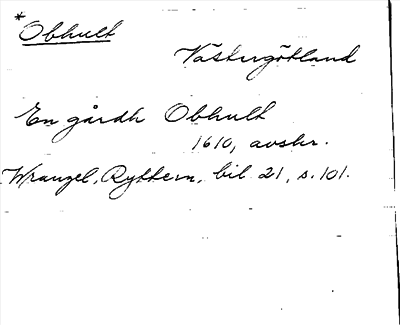 *Obhult
Västergötland
En gårdh Obhult
1610, avskr.
Wrangel, Ryttern, bil 21, s. 101.